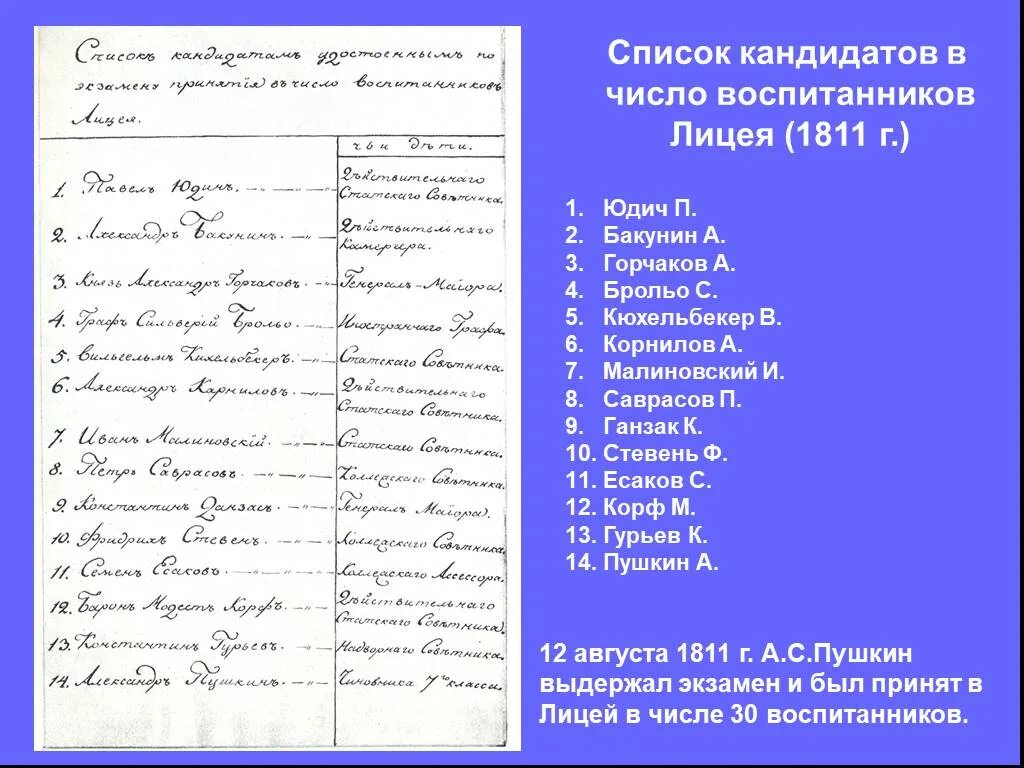 Списокъ кандидатамъ удостоеннымъ по
экзамену принятія въ число воспитанниковъ
Лицея.
чьи дѣти.
1. Павелъ Юдинъ. Дѣйствительнаго
Статскаго Совѣтника.
2. Александръ Бакунинъ. Дѣйствительнаго
Камергера.
3. Князь Александръ Горчаковъ. Генералъ-Маіора.
4. Графъ Сильверій Брольо. Иностранчаго Графа.
5. Вильгельмъ Кихельбекеръ. Статскаго Совѣтника.
6. Александръ Карниловъ. Дѣйствительнаго
Статскаго Совѣтника.
7. Иванъ Малиновскій. Статскаго Совѣтника.
8. Петръ Саврасовъ. Коллежскаго Совѣтника.
9. Константинъ Данзасъ. Генералъ Маіора.
10. Фридрихъ Стевенъ. Коллежскаго Совѣтника.
11. Семенъ Есаковъ. Коллежскаго Ассессора.
12. Баронъ Модестъ Корфъ. Дѣйствительнаго
Статскаго Совѣтника.
13. Константинъ Гурьевъ. Надворнаго Совѣтника.
14. Александръ Пушкинъ. Чиновника 7го класса.
Список кандидатов в
число воспитанников
Лицея (1811 г.)
1. Юдич П.
2. Бакунин А.
3. Горчаков А.
4. Брольо С.
5. Кюхельбекер В.
6. Корнилов А.
7. Малиновский И.
8. Саврасов П.
9. Ганзак К.
10. Стевень Ф.
11. Есаков С.
12. Корф М.
13. Гурьев К.
14. Пушкин А.
12 августа 1811 г. А.С.Пушкин
выдержал экзамен и был принят в
Лицей в числе 30 воспитанников.